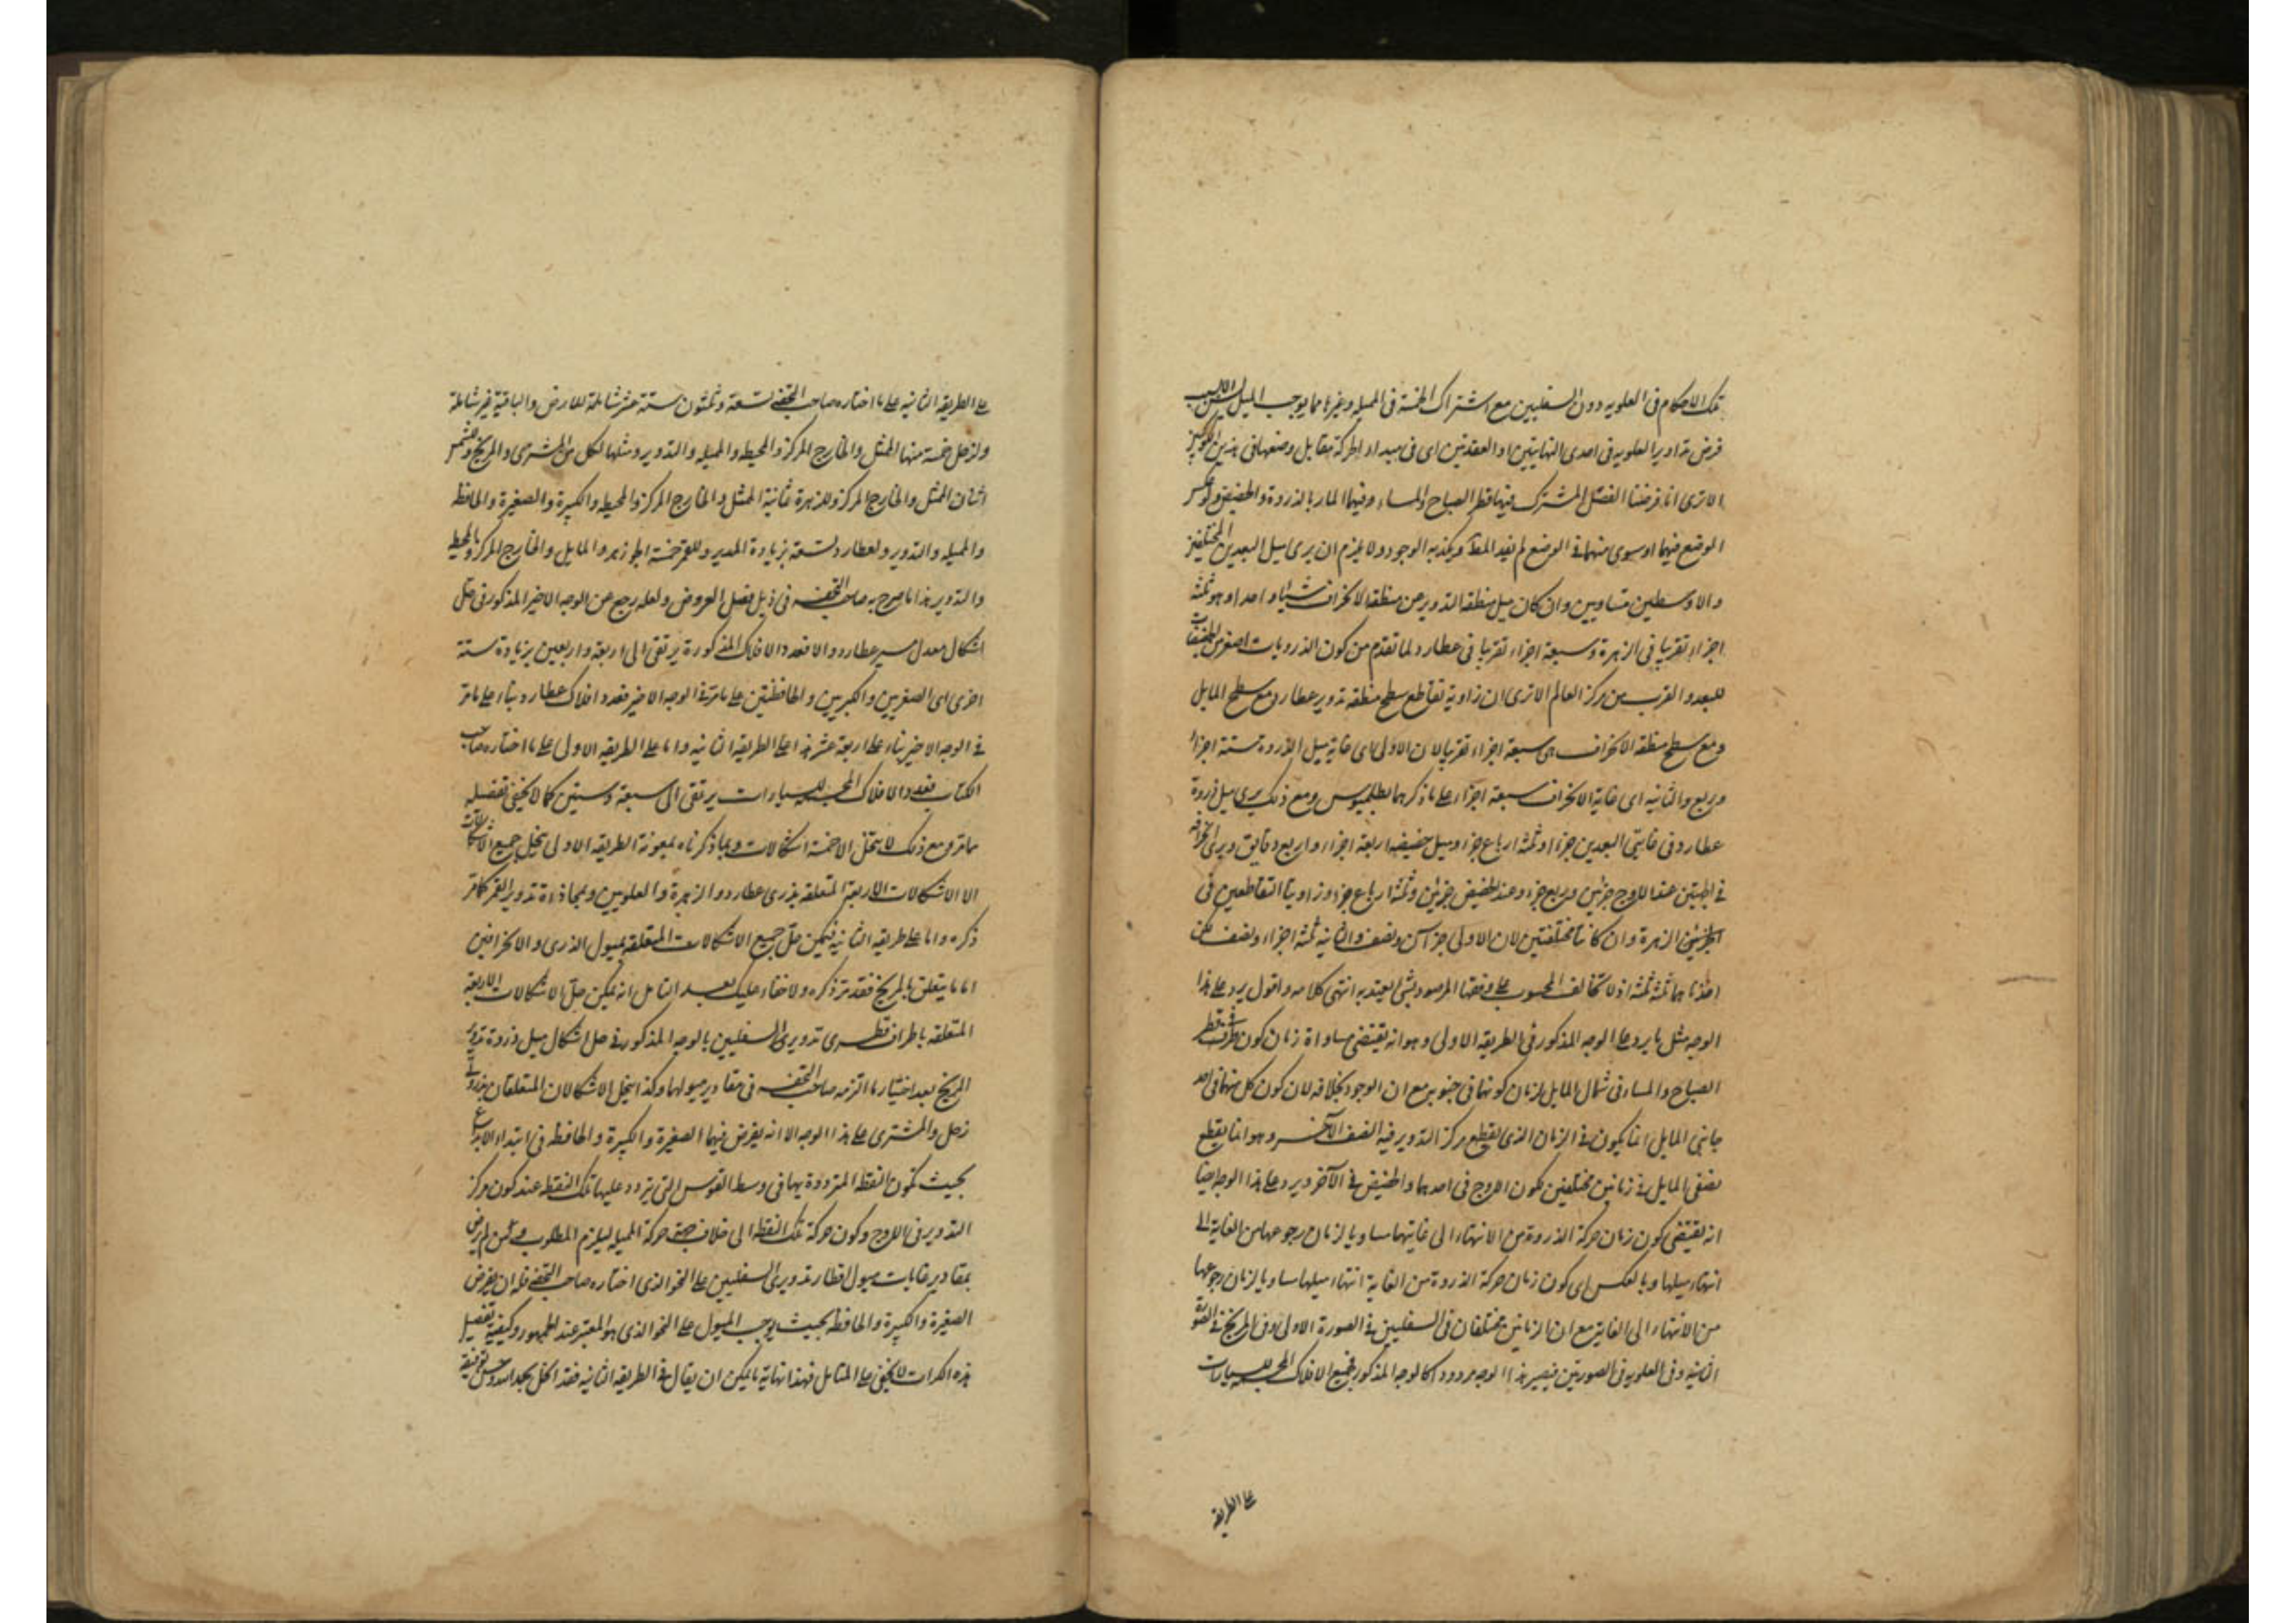 تلك الاحكام فى العلويه دون السفليين مع اشتراك الخمسة فى المميله وغيرها مما يوجب الميل
فرض تداوير العلويه فى احدى النهايتين او العقدتين اى فى مبداء الحركة مقابل وضعها فى هذين
الا ترى انا فرضنا الفصل المشترك فيها قطر الصباح والمساء وفيهما المار بالذروة والحضيض ولو عكس
الوضع فيهما او سوى منهما فى الوضع لم يفد المط ويكذبه الوجود ولا يلزم ان يرى ميل البعدين المختلفين
والاوسطين متساويين وان كان ميل منطقة التدوير عن منطقة الانحراف شيئا واحدا وهو ثلثة
اجزاء تقريبا فى الزهرة وسبعة اجزاء تقريبا فى عطارد لما تقدم من كون الذرويات اصغر من الحضيضيات
للبعد والقرب من مركز العالم الا ترى ان زاوية تقاطع سطح منطقة تدوير عطارد مع سطح المايل
ومع سطح منطقة الانحراف هى سبعة اجزاء تقريبا لان الاولى اى غاية ميل الذروة ستة اجزاء
وربع والثانيه اى غاية الانحراف سبعة اجزاء على ما ذكرهما بطلميوس ومع ذلك يرى ميل ذروة
عطارد فى غايتى البعدين جزءا وثلثة ارباع جزء وميل حضيضه اربعة اجزاء واربع دقايق ويرى انحرافه
فى الجهتين عند الاوج جزئين وربع جزء وعند الحضيض جزئين وثلثة ارباع جزء وزاويتا التقاطعين فى
الجزئين الزهرة وان كانتا مختلفتين لان الاولى جزآن ونصف والثانيه ثلثة اجزاء ونصف لكن
اخذناهما ثلثة ثلثة اذ لا تخالف المحسوب على وفقها المرصود بشئ يعتد به انتهى كلامه واقول يرد على هذا
الوجه مثل ما يرد على الوجه المذكور فى الطريقه الاولى وهو انه يقتضى مساواة زمان كون طرفى قطر
الصباح والمساء فى شمال المايل لزمان كونها فى جنوبه مع ان الوجود بخلافه لان كون كل منهما فى احد
جانبى المايل انما يكون فى الزمان الذى يقطع مركز التدوير فيه النصف الآخر وهو انما يقطع
نصفى المايل فى زمانين مختلفين لكون الاوج فى احدهما والحضيض فى الآخر ويرد على هذا الوجه ايضا
انه يقتضى كون زمان حركة الذروة من الانتهاء الى غايتها مساويا لزمان رجوعها من الغاية الى
انتهاء ميلها وبالعكس اى كون زمان حركة الذروة من الغاية انتهاء ميلها مساويا لزمان رجوعها
من الانتهاء الى الغاية مع ان الزمانين مختلفان فى السفليين فى الصورة الاولى وفى المريخ فى الصورة
الثانية وفى العلويه فى الصورتين فيصير هذا الوجه مردودا كالوجه المذكور فجميع الافلاك المجسمة للسيارات
على الطريقه
على الطريقه الثانيه على ما اختاره صاحب التحفه تسعة وثلثون ستة عشر شاملة للارض والباقية غير شاملة
ولزحل خمسة منها الممثل والخارج المركز والمحيطه والمميله والتدوير ومثلها لكل من المشترى والمريخ وللشمس
اثنان الممثل والخارج المركز وللزهرة ثمانية الممثل والخارج المركز والمحيطه والكبيرة والصغيرة والحافظه
والمميله والتدوير ولعطارد تسعة بزيادة المدير وللقمر خمسة الجوزهر والمايل والخارج المركز والمحيطه
والتدوير هذا ما صرح به صاحب التحفه فى ذيل فصل العروض ولعله رجع عن الوجه الاخير المذكور فى حل
اشكال معدل مسير عطارد والا فعدد الافلاك المذكورة يرتقى الى اربعة واربعين بزيادة ستة
اخرى اى الصغريين والكبريين والحافظتين على ما مر فى الوجه الاخير فعدد افلاك عطارد بناء على ما مر
فى الوجه الاخير بناء على اربعة عشر هذا على الطريقه الثانيه واما على الطريقه الاولى على ما اختاره صاحب
الكتاب فعدد الافلاك المجسمة للسيارات يرتقى الى سبعة وستين كما لا يخفى تفصيله
مما مر ومع ذلك لا ينحل الا خمسة اشكالات وبما ذكرناه بمعونة الطريقه الاولى ينحل جميع الاشكالات
الا الاشكالات الاربعة المتعلقه بذرى عطارد والزهرة والعلويين وبمحاذاة تدوير القمر كما مر
ذكره واما على طريقه الثانيه فيمكن حل جميع الاشكالات المتعلقه بميول الذرى والانحرافين
اما ما يتعلق بالمريخ فقد مر ذكره ولا خفاء عليك بعد التامل انه يمكن حل الاشكالات الاربعة
المتعلقه باطراف قطرى تدويرى السفليين بالوجه المذكور فى حل اشكال ميل ذروة تدوير
المريخ بعد اختيار ما التزمه صاحب التحفه فى مقادير ميولها وكذا ينحل الاشكالان المتعلقان بذروتى
زحل والمشترى على هذا الوجه الا انه يفرض فيهما الصغيرة والكبيرة والحافظه فى ابتداء الابداع
بحيث تكون النقطة المترددة بها فى وسط القوس التى يتردد عليها تلك النقطه عند كون مركز
التدوير فى الاوج وكون حركة تلك النقطه الى خلاف جهة حركة المميله ليلزم المطلوب ومن لم يرض
بمقادير غايات ميول اقطار تدويرى السفليين على النحو الذى اختاره صاحب التحفه فله ان يفرض
الصغيرة والكبيرة والحافظه بحيث يوجب الميول على النحو الذى هو المعتبر عند الجمهور وكيفية تفصيل
هذه الكرات لا يخفى على المتامل فهذا نهاية ما يمكن ان يقال فى الطريقه الثانيه فقد انحل بحمد الله وحسن توفيقه